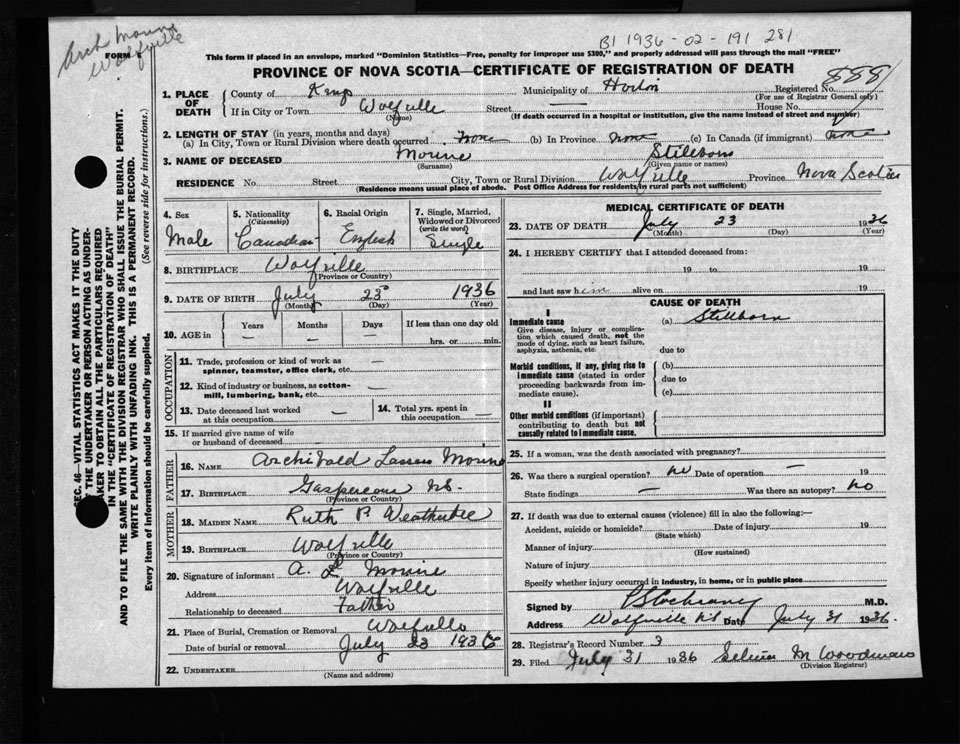 Arch Mourine
Wolfville
FORM
B1 1936-02-191 281
This form if placed in an envelope, marked "Dominion Statistics—Free, penalty for improper use $300," and properly addressed will pass through the mail "FREE"
PROVINCE OF NOVA SCOTIA—CERTIFICATE OF REGISTRATION OF DEATH
888
1. PLACE OF DEATH County of Kings Municipality of Horton Registered No.
(For use of Registrar General only)
If in City or Town Wolfville Street — House No.
(Name) (If death occurred in a hospital or institution, give the name instead of street and number)
2. LENGTH OF STAY (in years, months and days)
(a) In City, Town or Rural Division where death occurred none (b) In Province none (c) In Canada (if immigrant) none
3. NAME OF DECEASED Mourine Stillborn
(Surname) (Given name or names)
RESIDENCE No. Street City, Town or Rural Division Wolfville Province Nova Scotia
(Residence means usual place of abode. Post Office Address for residents in rural parts not sufficient)
4. Sex Male
5. Nationality (Citizenship) Canadian
6. Racial Origin English
7. Single, Married, Widowed or Divorced (write the word) Single
8. BIRTHPLACE Wolfville
(Province or Country)
9. DATE OF BIRTH July 23 1936
(Month) (Day) (Year)
10. AGE in Years Months Days If less than one day old
— — — hrs. or min.
OCCUPATION
11. Trade, profession or kind of work as spinner, teamster, office clerk, etc. —
12. Kind of industry or business, as cotton-mill, lumbering, bank, etc. —
13. Date deceased last worked at this occupation —
14. Total yrs. spent in this occupation —
15. If married give name of wife or husband of deceased —
FATHER
16. NAME Archibald Mourine
17. BIRTHPLACE Gaspereau N.S.
(Province or Country)
MOTHER
18. MAIDEN NAME Ruth P. Weatherbee
19. BIRTHPLACE Wolfville
(Province or Country)
20. Signature of informant A. L. Mourine
Address Wolfville
Relationship to deceased Father
21. Place of Burial, Cremation or Removal Wolfville
Date of burial or removal July 23 1936
22. UNDERTAKER
(Name and address)
MEDICAL CERTIFICATE OF DEATH
23. DATE OF DEATH July 23 1936
(Month) (Day) (Year)
24. I HEREBY CERTIFY that I attended deceased from:
19 to 19
and last saw him alive on 19
CAUSE OF DEATH
I
Immediate cause (a) Stillborn
Give disease, injury or complication which caused death, not the mode of dying, such as heart failure, asphyxia, asthenia, etc.
due to
Morbid conditions, if any, giving rise to immediate cause (stated in order proceeding backwards from immediate cause).
(b)
due to
(c)
II
Other morbid conditions (if important) contributing to death but not causally related to immediate cause.
25. If a woman, was the death associated with pregnancy?
26. Was there a surgical operation? no Date of operation — 19
State findings — Was there an autopsy? no
27. If death was due to external causes (violence) fill in also the following:—
Accident, suicide or homicide? Date of injury 19
(State which)
Manner of injury
(How sustained)
Nature of injury
Specify whether injury occurred in industry, in home, or in public place
Signed by Cochrane M.D.
Address Wolfville N.S. Date July 31 1936
28. Registrar's Record Number 3
29. Filed July 31 1936 M Woodman
(Division Registrar)
SEC. 46—VITAL STATISTICS ACT MAKES IT THE DUTY
OF THE UNDERTAKER OR PERSON ACTING AS UNDER-
TAKER TO OBTAIN ALL THE PARTICULARS REQUIRED
IN THE "CERTIFICATE OF REGISTRATION OF DEATH"
AND TO FILE THE SAME WITH THE DIVISION REGISTRAR WHO SHALL ISSUE THE BURIAL PERMIT.
WRITE PLAINLY WITH UNFADING INK. THIS IS A PERMANENT RECORD.
Every item of information should be carefully supplied. (See reverse side for instructions.)